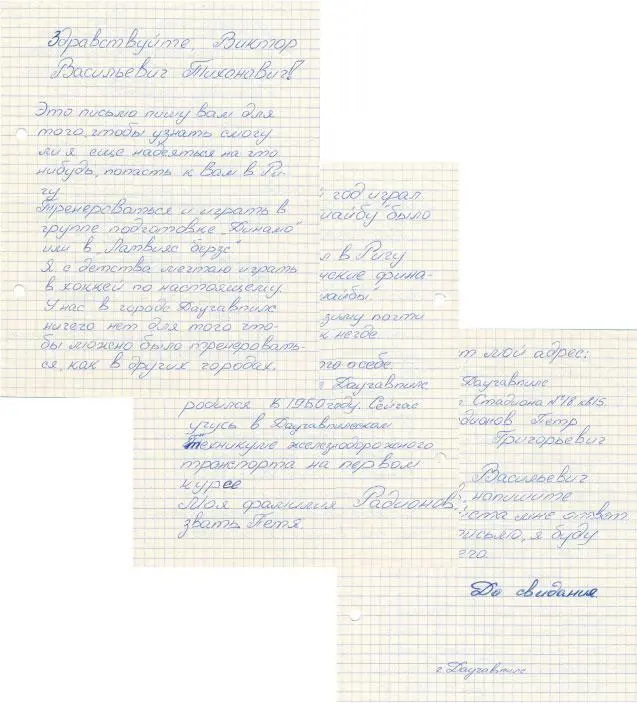 Здравствуйте, Виктор
Васильевич Тихонавич!
Это письмо пишу вам для
того, чтобы узнать смогу
ли я еще надеяться на что
нибудь, попасть к вам в Ри-
гу
Тренероваться и играть в
группе подготовке "Динамо"
или в "Латвияс берзс"
Я с детства мечтаю играть
в хоккей по настоящему.
У нас в городе Даугавпилс
ничего нет для того что-
бы можно было тренеровать-
ся, как в других городах.
год играл
шайбу было
л в Ригу
ские фина-
айбы"
зиму почти
к негде
о себе.
г Даугавпилс
родился в 1960 году. Сейчас
учусь в Даугавпилском
техникуме железнодорожного
транспорта на первом
курсе
Моя фамилия Радионов
звать Петя.
т мой адрес:
Даугавпилс
Стадиона №18 кв15.
дионов Петр
Григорьевич
Васильевич
напишите
йста мне ответ
письмо, я буду
его.
До свидания
г Даугавпилс